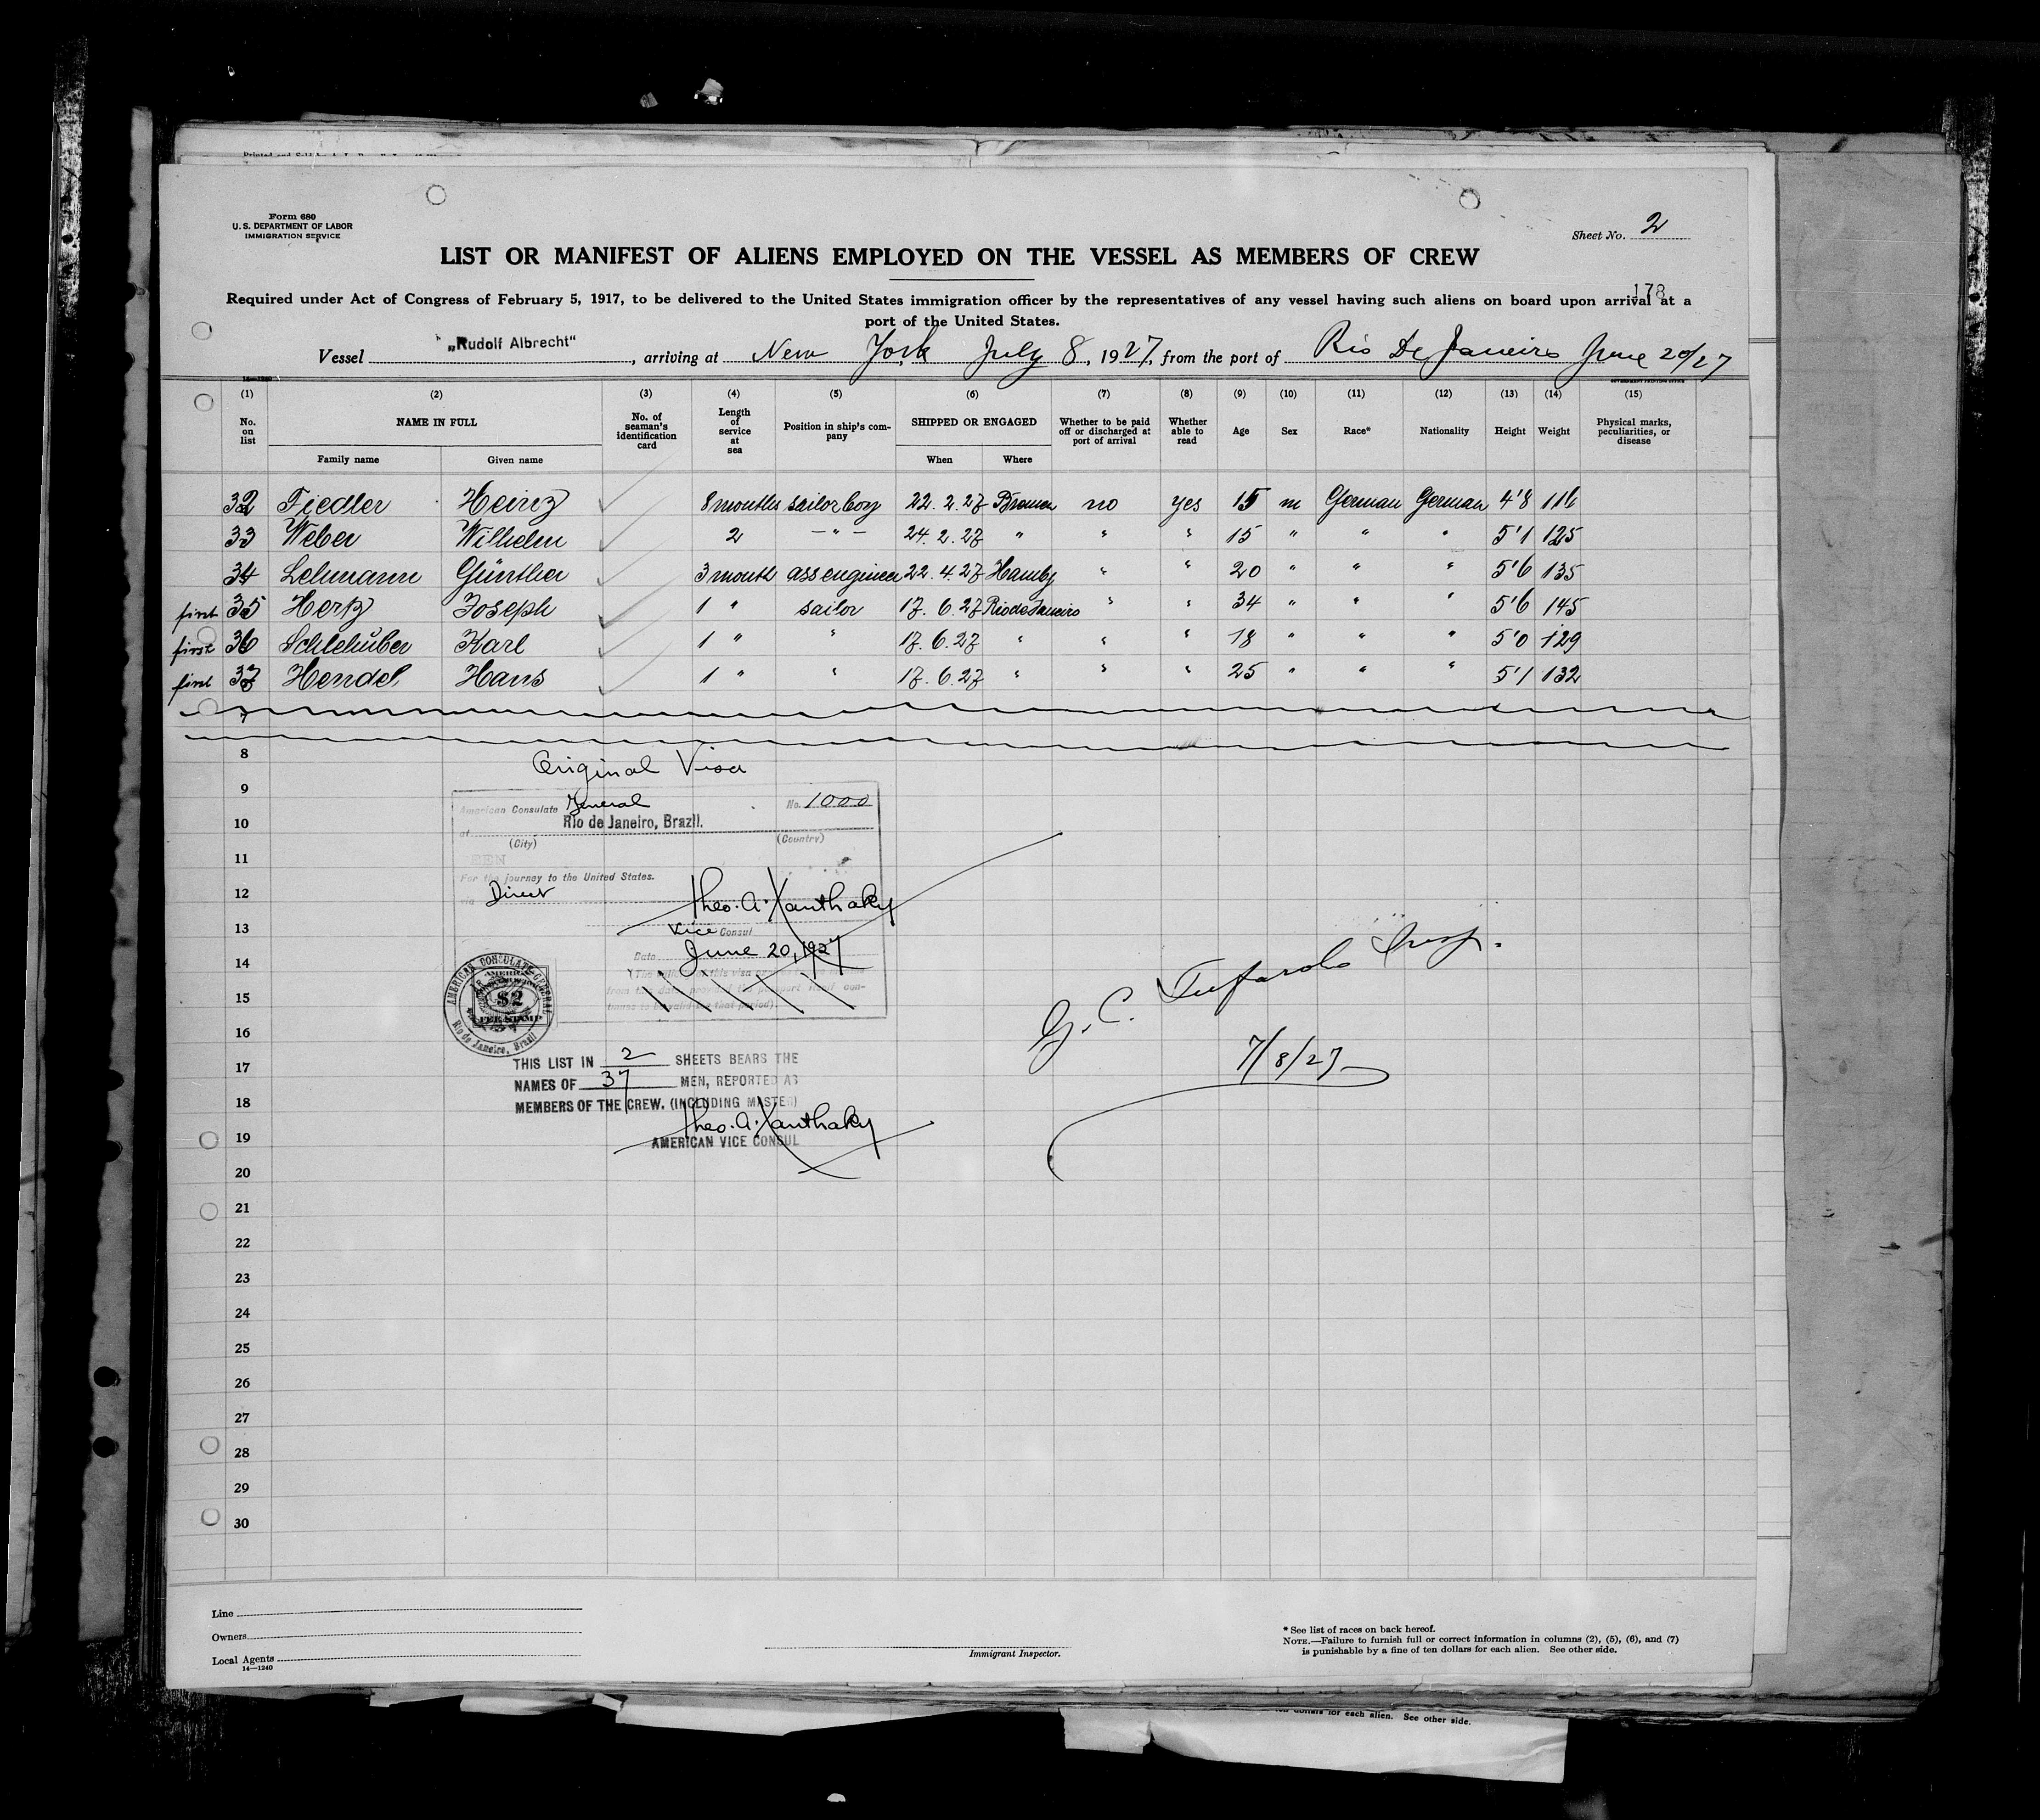 Form 680
U. S. DEPARTMENT OF LABOR
IMMIGRATION SERVICE
Sheet No. 2
LIST OR MANIFEST OF ALIENS EMPLOYED ON THE VESSEL AS MEMBERS OF CREW
178
Required under Act of Congress of February 5, 1917, to be delivered to the United States immigration officer by the representatives of any vessel having such aliens on board upon arrival at a
port of the United States.
Vessel „Rudolf Albrecht", arriving at New York July 8, 1927, from the port of Rio De Janeiro June 20/27
(1) (2) (3) (4) (5) (6) (7) (8) (9) (10) (11) (12) (13) (14) (15)
No. on list NAME IN FULL No. of seaman's identification card Length of service at sea Position in ship's company SHIPPED OR ENGAGED Whether to be paid off or discharged at port of arrival Whether able to read Age Sex Race* Nationality Height Weight Physical marks, peculiarities, or disease
Family name Given name When Where
32 Fiedler Heinz 8 months sailor boy 22. 2. 27 Bremen no yes 15 m German German 4'8 116
33 Weber Wilhelm 2 — " — 24. 2. 27 " " " 15 " " " 5'1 125
34 Lehmann Günther 3 month ass engineer 22. 4. 27 Hamby " " 20 " " " 5'6 135
first 35 Hertz Joseph 1 " sailor 17. 6. 27 Rio de Janeiro " " 34 " " " 5'6 145
first 36 Schlehuber Karl 1 " " 17. 6. 27 " " " 18 " " " 5'0 129
first 37 Hendel Hans 1 " " 17. 6. 27 " " " 25 " " " 5'1 132
7
8
Original Visa
9
American Consulate General No. 1000
10
at Rio de Janeiro, Brazil.
(City) (Country)
11
SEEN
For the journey to the United States.
12
via Direct
Theo. A. Xanthaky
13
Vice Consul
Date June 20, 1927
14
AMERICAN CONSULATE GENERAL
Rio de Janeiro, Brazil
$2
FEE STAMP
15
16
G. C. Insp.
7/8/27
THIS LIST IN 2 SHEETS BEARS THE
17
NAMES OF 37 MEN, REPORTED AS
18
MEMBERS OF THE CREW. (INCLUDING MASTER)
Theo. A. Xanthaky
19
AMERICAN VICE CONSUL
20
21
22
23
24
25
26
27
28
29
30
Line
Owners
Local Agents
14—1240
Immigrant Inspector.
* See list of races on back hereof.
NOTE.—Failure to furnish full or correct information in columns (2), (5), (6), and (7)
is punishable by a fine of ten dollars for each alien. See other side.
dollars for each alien. See other side.